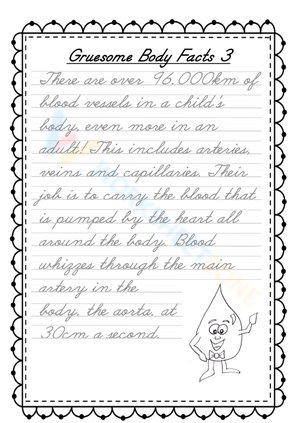 Gruesome Body Facts 3
There are over 96,000km of
blood vessels in a child's
body, even more in an
adult! This includes arteries,
veins and capillaries. Their
job is to carry the blood that
is pumped by the heart all
around the body. Blood
whizzes through the main
artery in the
body, the aorta, at
30cm a second.